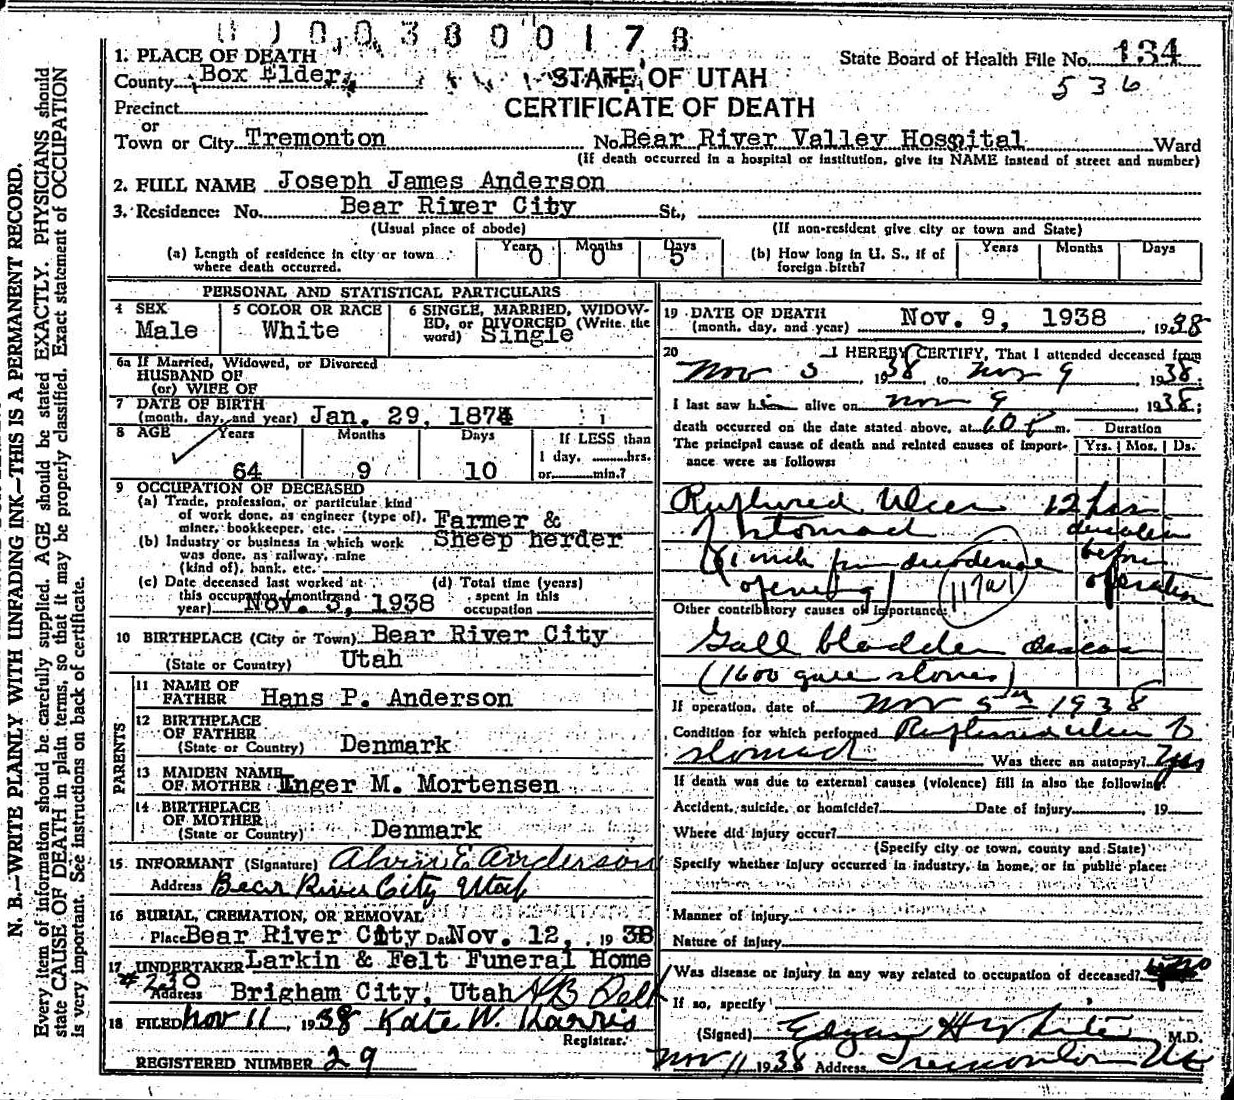 1003800178
1. PLACE OF DEATH
County Box Elder
STATE OF UTAH
State Board of Health File No. 134
536
Precinct
CERTIFICATE OF DEATH
or
Town or City Tremonton No. Bear River Valley Hospital Ward
(If death occurred in a hospital or institution, give its NAME instead of street and number)
2. FULL NAME Joseph James Anderson
3. Residence: No. Bear River City St.,
(Usual place of abode) (If non-resident give city or town and State)
(a) Length of residence in city or town where death occurred. Years 0 Months 0 Days 5
(b) How long in U. S., if of foreign birth? Years Months Days
PERSONAL AND STATISTICAL PARTICULARS
4 SEX Male
5 COLOR OR RACE White
6 SINGLE, MARRIED, WIDOWED, or DIVORCED (Write the word) Single
6a If Married, Widowed, or Divorced
HUSBAND OF
(or) WIFE OF
7 DATE OF BIRTH
(month, day, and year) Jan. 29, 1874
8 AGE Years 64 Months 9 Days 10
If LESS than
1 day, hrs.
or min.?
9 OCCUPATION OF DECEASED
(a) Trade, profession, or particular kind
of work done, as engineer (type of),
miner, bookkeeper, etc. Farmer &
(b) Industry or business in which work Sheep herder
was done, as railway, mine
(kind of), bank, etc.
(c) Date deceased last worked at
this occupation (month and
year) Nov. 3, 1938
(d) Total time (years)
spent in this
occupation
10 BIRTHPLACE (City or Town) Bear River City
(State or Country) Utah
PARENTS
11 NAME OF
FATHER Hans P. Anderson
12 BIRTHPLACE
OF FATHER
(State or Country) Denmark
13 MAIDEN NAME
OF MOTHER Inger M. Mortensen
14 BIRTHPLACE
OF MOTHER
(State or Country) Denmark
15 INFORMANT (Signature) Alvin E Anderson
Address Bear River City Utah
16 BURIAL, CREMATION, OR REMOVAL
Place Bear River City Date Nov. 12, 1938
17 UNDERTAKER Larkin & Felt Funeral Home
#230
Address Brigham City, Utah
18 FILED Nov 11, 1938 Kate W. Harris
Registrar.
REGISTERED NUMBER 29
19 DATE OF DEATH
(month, day, and year) Nov. 9, 1938 1938
20 I HEREBY CERTIFY, That I attended deceased from
Nov 5, 1938 to Nov 9, 1938;
I last saw him alive on Nov 9, 1938;
death occurred on the date stated above, at m. Duration
The principal cause of death and related causes of importance were as follows: Yrs. Mos. Ds.
Ruptured Ulcer 12 hrs
of stomach duration
1 inch from duodenal before
opening operation
Other contributory causes of importance:
Gall bladder disease
(1600 gall stones)
If operation, date of Nov 5th 1938
Condition for which performed Ruptured Ulcer of
stomach Was there an autopsy? Yes
If death was due to external causes (violence) fill in also the following:
Accident, suicide, or homicide? Date of injury 19
Where did injury occur?
(Specify city or town, county and State)
Specify whether injury occurred in industry, in home, or in public place:
Manner of injury
Nature of injury
Was disease or injury in any way related to occupation of deceased? no
If so, specify
(Signed) Edgar H White M.D.
Nov 11 1938 Address Tremonton Ut
N. B.—WRITE PLAINLY WITH UNFADING INK—THIS IS A PERMANENT RECORD.
Every item of information should be carefully supplied. AGE should be stated EXACTLY. PHYSICIANS should
state CAUSE OF DEATH in plain terms, so that it may be properly classified. Exact statement of OCCUPATION
is very important. See instructions on back of certificate.